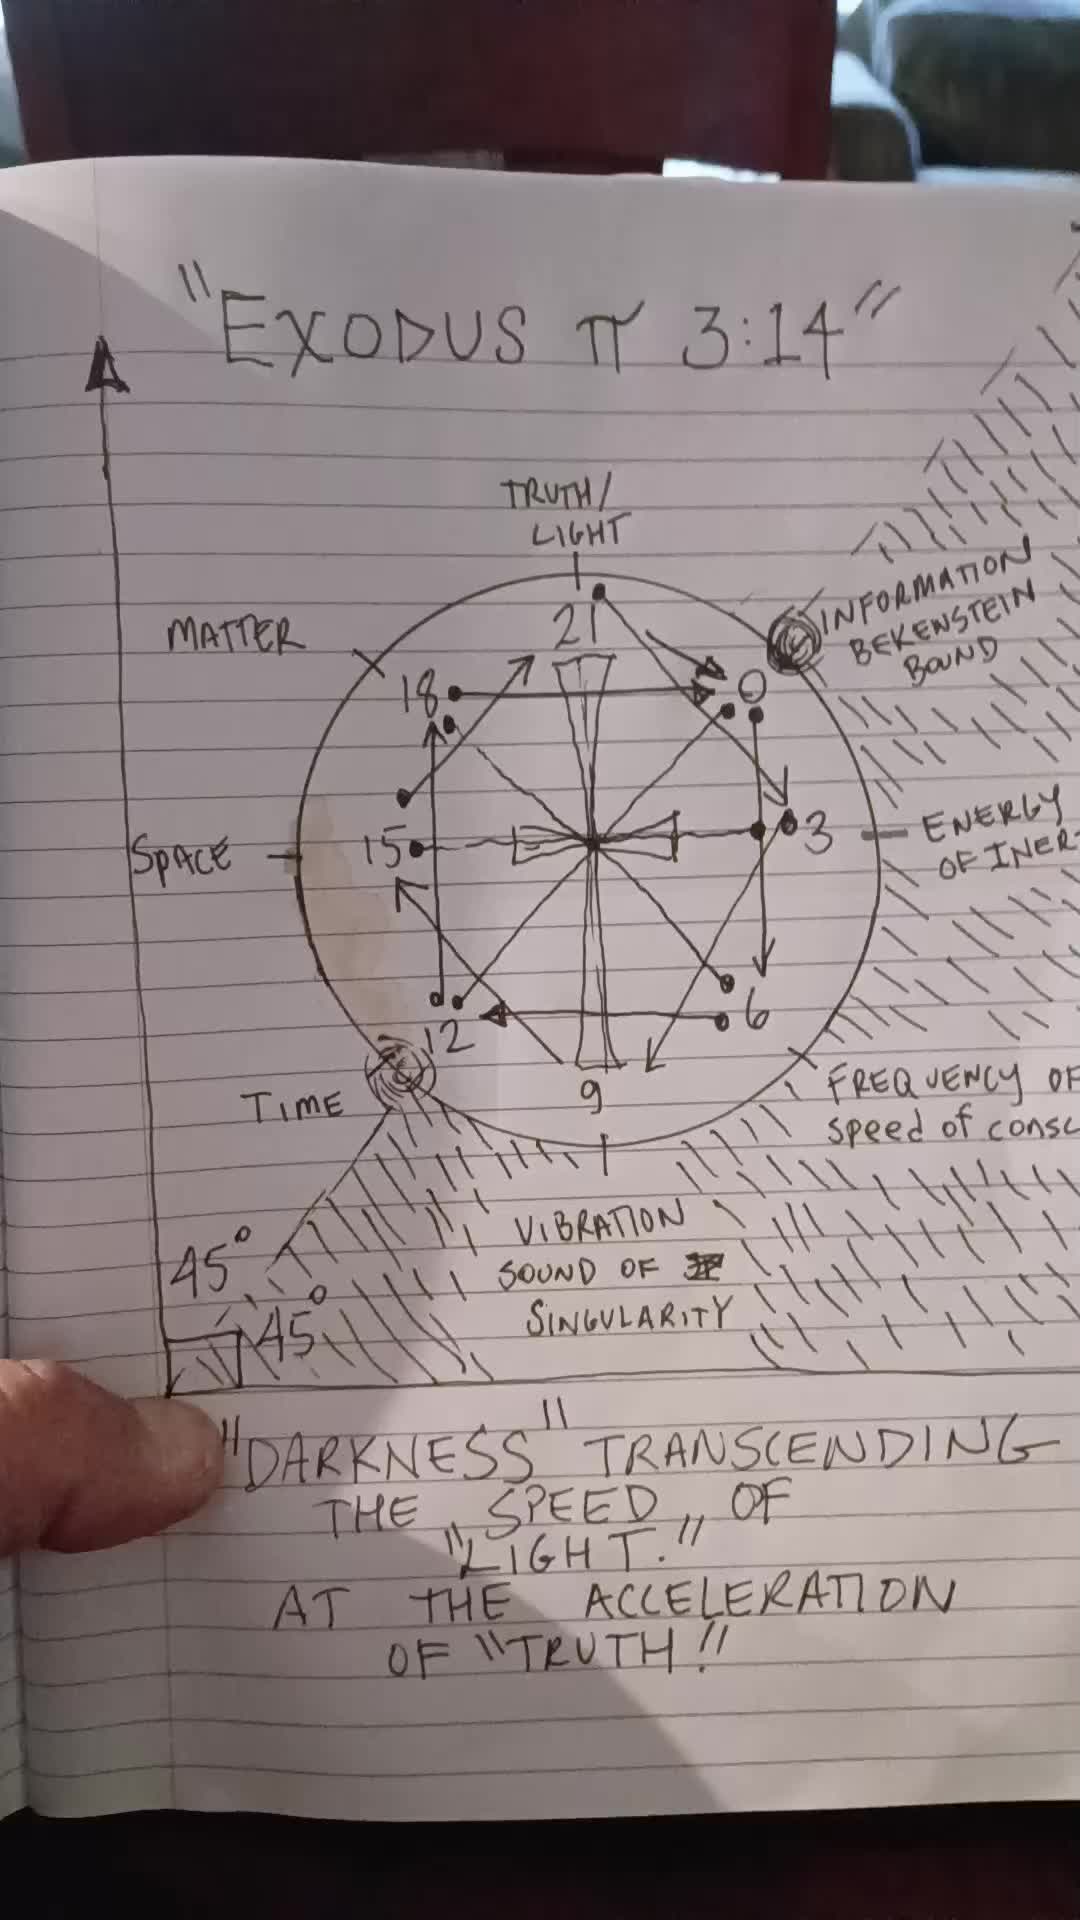 "EXODUS π 3:14"
TRUTH/
LIGHT
MATTER
INFORMATION
BEKENSTEIN
BOUND
21
18
0
SPACE
15
3
ENERGY
OF INER
12
6
9
TIME
FREQUENCY OF
speed of consc
45°
45°
VIBRATION
SOUND OF
SINGULARITY
"DARKNESS" TRANSCENDING
THE SPEED OF
"LIGHT."
AT THE ACCELERATION
OF "TRUTH!"